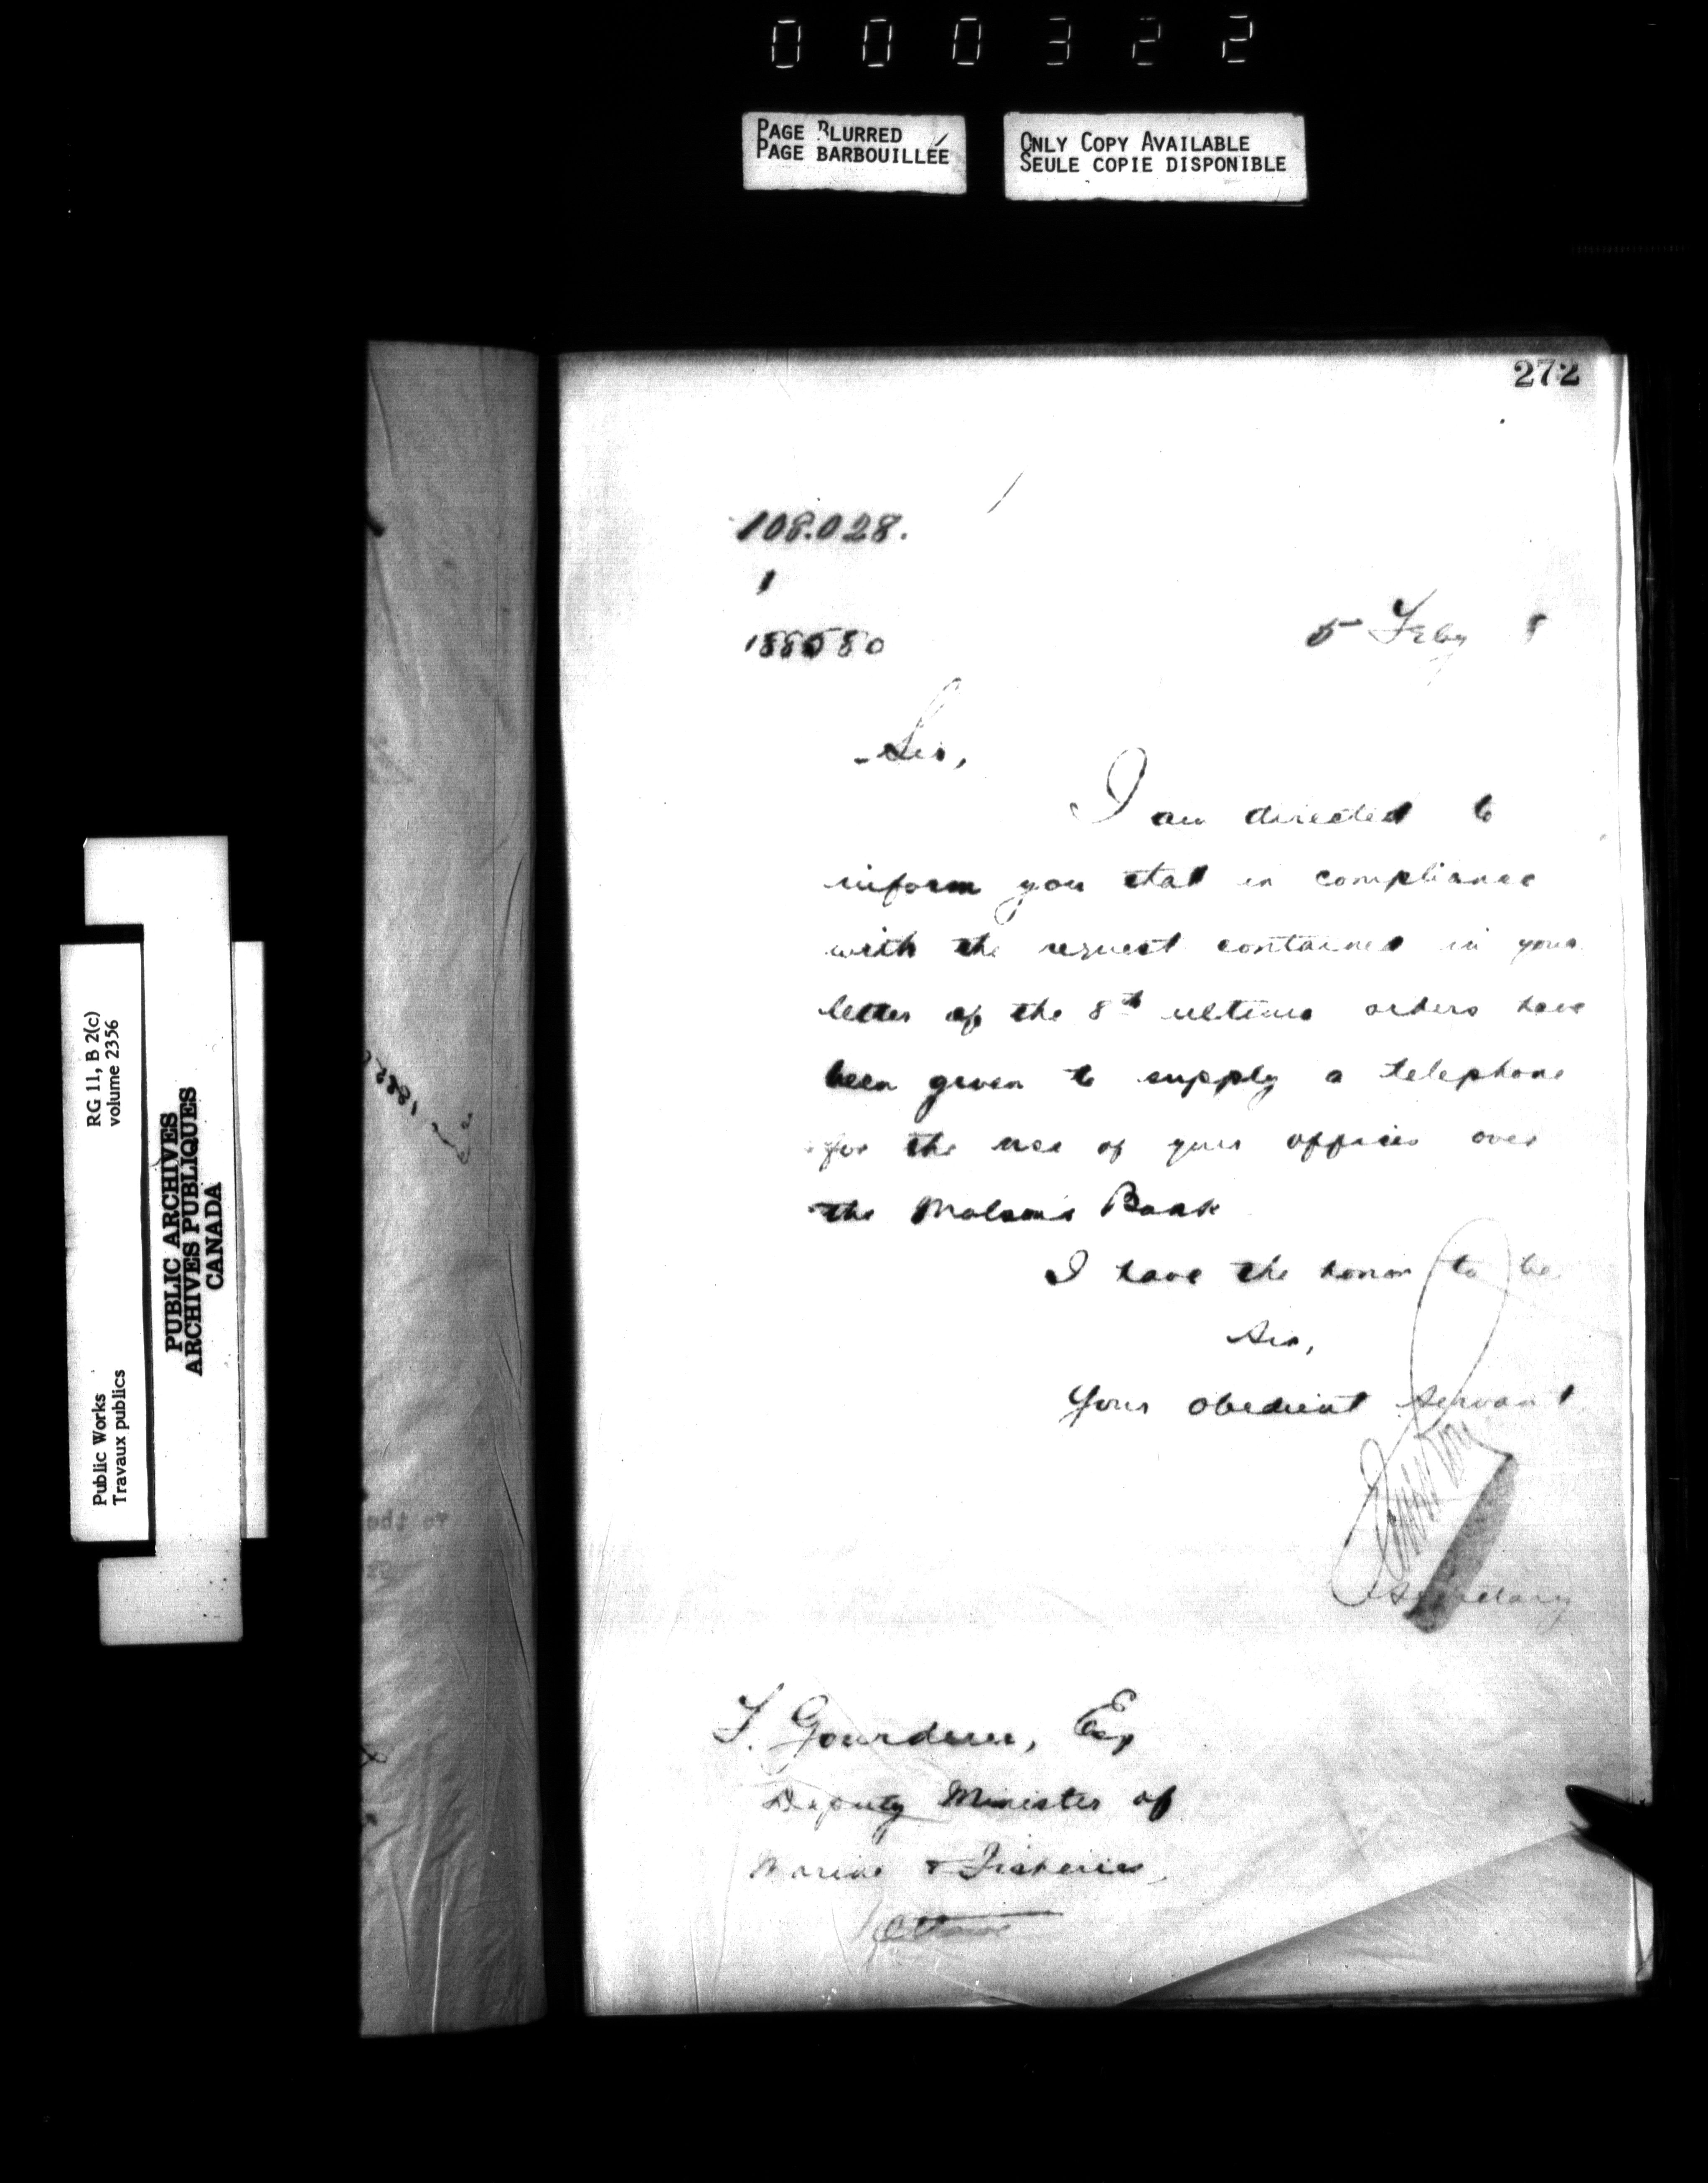 000322
PAGE BLURRED
PAGE BARBOUILLÉE
ONLY COPY AVAILABLE
SEULE COPIE DISPONIBLE
272
108.028.
1
188580
5 Feby 8
Sir,
I am directed to
inform you that in compliance
with the request contained in your
letter of the 8th ultimo orders have
been given to supply a telephone
for the use of your offices over
the Molson's Bank
I have the honor to be
Sir,
Your obedient servant
Secretary
F. Gourdeau, Esq
Deputy Minister of
Marine & Fisheries,
Ottawa
RG 11, B 2(c)
volume 2356
Public Works
Travaux publics
PUBLIC ARCHIVES
ARCHIVES PUBLIQUES
CANADA